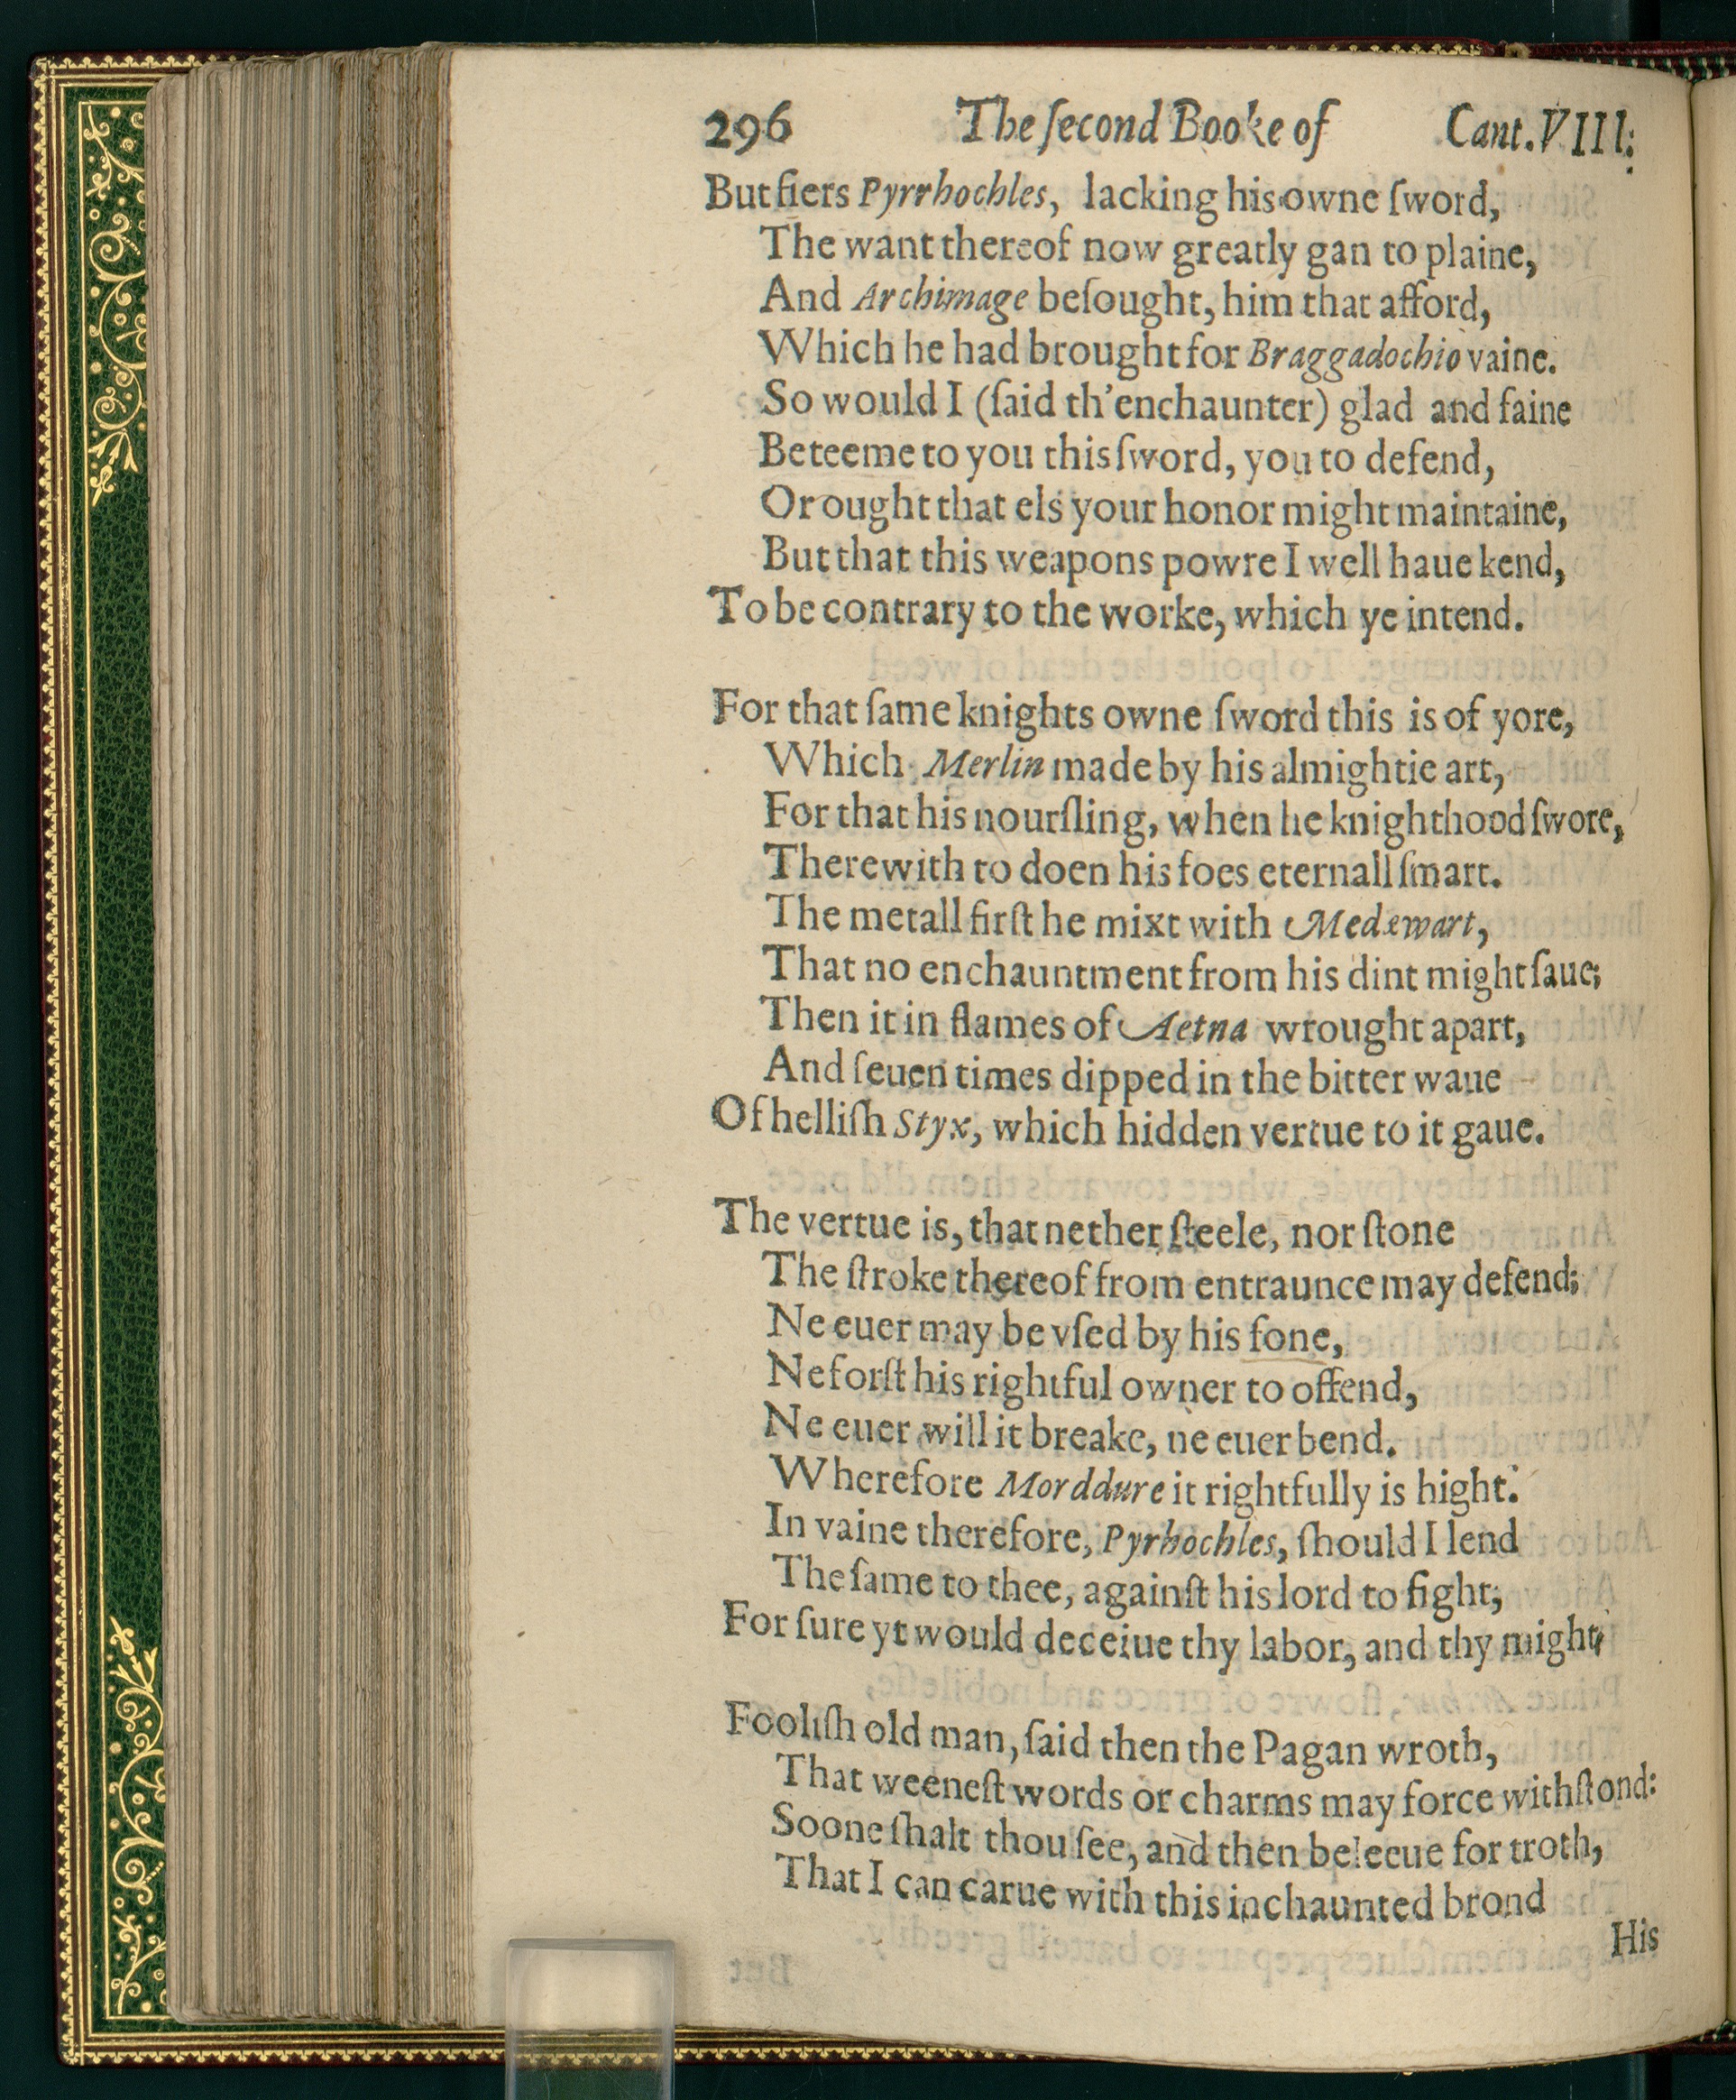 296 The ſecond Booke of Cant. VIII.
But fiers Pyrrhochles, lacking his owne ſword,
The want thereof now greatly gan to plaine,
And Archimage beſought, him that afford,
Which he had brought for Braggadochio vaine.
So would I (ſaid th'enchaunter) glad and faine
Beteeme to you this ſword, you to defend,
Or ought that els your honor might maintaine,
But that this weapons powre I well haue kend,
To be contrary to the worke, which ye intend.
For that ſame knights owne ſword this is of yore,
Which Merlin made by his almightie art,
For that his nourſling, when he knighthood ſwore,
Therewith to doen his foes eternall ſmart.
The metall firſt he mixt with Medæwart,
That no enchauntment from his dint might ſaue;
Then it in flames of Aetna wrought apart,
And ſeuen times dipped in the bitter waue
Of helliſh Styx, which hidden vertue to it gaue.
The vertue is, that nether ſteele, nor ſtone
The ſtroke thereof from entraunce may defend;
Ne euer may be vſed by his fone,
Ne forſt his rightful owner to offend,
Ne euer will it breake, ne euer bend.
Wherefore Morddure it rightfully is hight.
In vaine therefore, Pyrhochles, ſhould I lend
The ſame to thee, againſt his lord to fight,
For ſure yt would deceiue thy labor, and thy might,
Fooliſh old man, ſaid then the Pagan wroth,
That weeneſt words or charms may force withſtond:
Soone ſhalt thou ſee, and then beleeue for troth,
That I can carue with this inchaunted brond
His